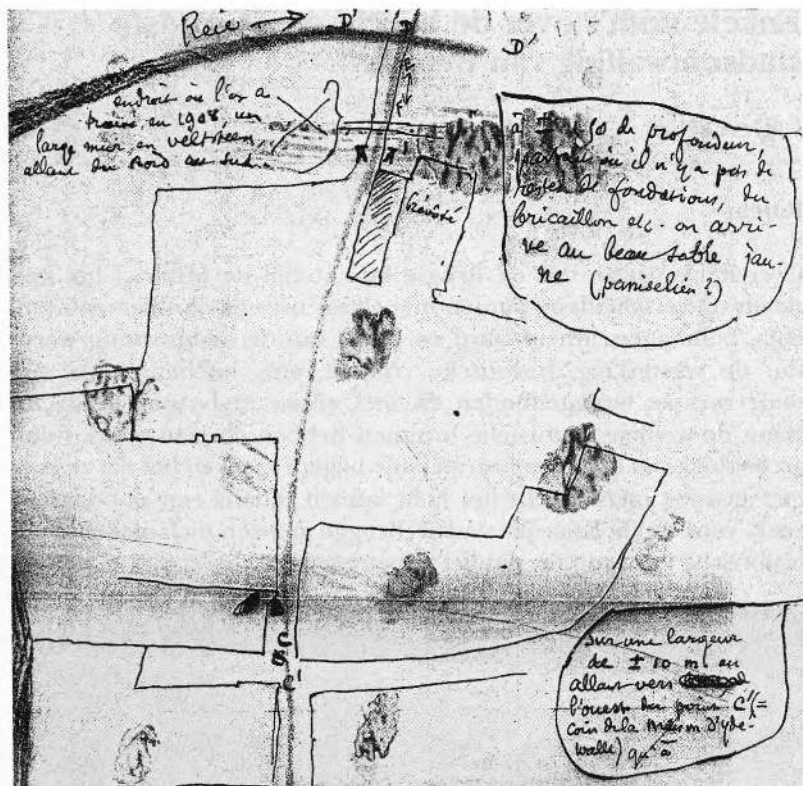 Reie
D'
D
D'
E
F
endroit où l'on a
trouvé, en 1908, un
large mur, en veltsteen,
allant du Nord au Sud.
A
A'
Prévôté
à ± 50 de profondeur,
partout où il n'y a pas de
restes de fondations, du
bricaillon etc. on arri-
ve au beau sable jau-
ne (paniselien?)
C
C'
sur une largeur
de ± 10 m. en
allant vers
l'ouest du point C' (=
coin de la maison d'yde-
walle) qu'à